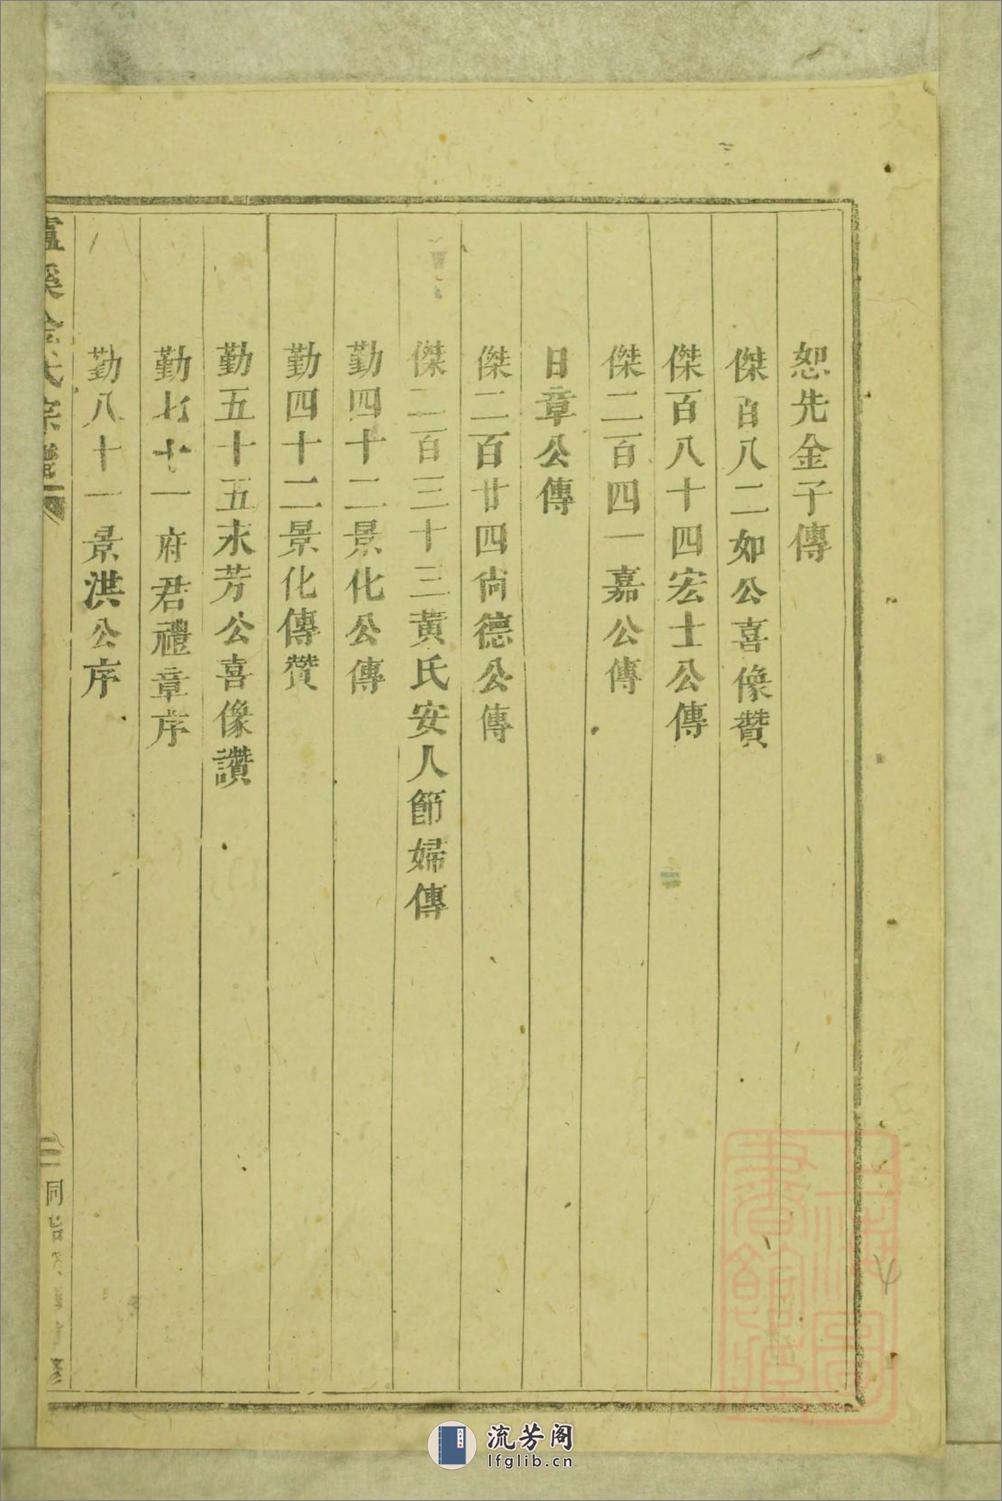 恕先金子傳
傑百八二如公喜像贊
傑百八十四宏士公傳
傑二百四一嘉公傳
日章公傳
傑二百廿四尙德公傳
傑二百三十三黃氏安人節婦傳
勤四十二景化公傳
勤四十二景化傳贊
勤五十五末芳公喜像讚
勤七十一府君禮章序
勤八十一景洪公序
溪金氏宗譜
二
同治 修
上海圖書館藏
流芳阁
lfglib.cn